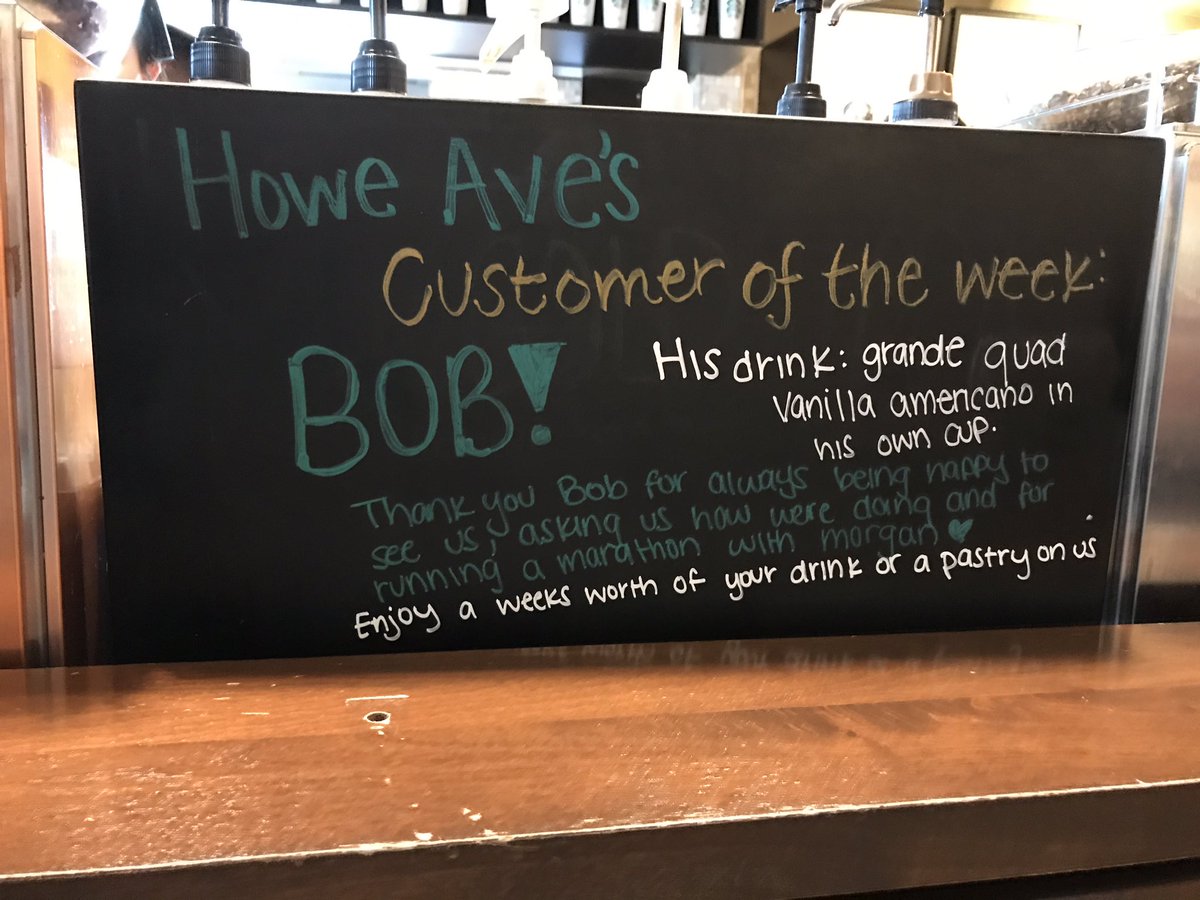 Howe Ave's
Customer of the week:
BOB!
His drink: grande quad
Vanilla americano in
his own cup.
Thank you Bob for always being happy to
see us, asking us how were doing and for
running a marathon with morgan ♥
Enjoy a weeks worth of your drink or a pastry on us